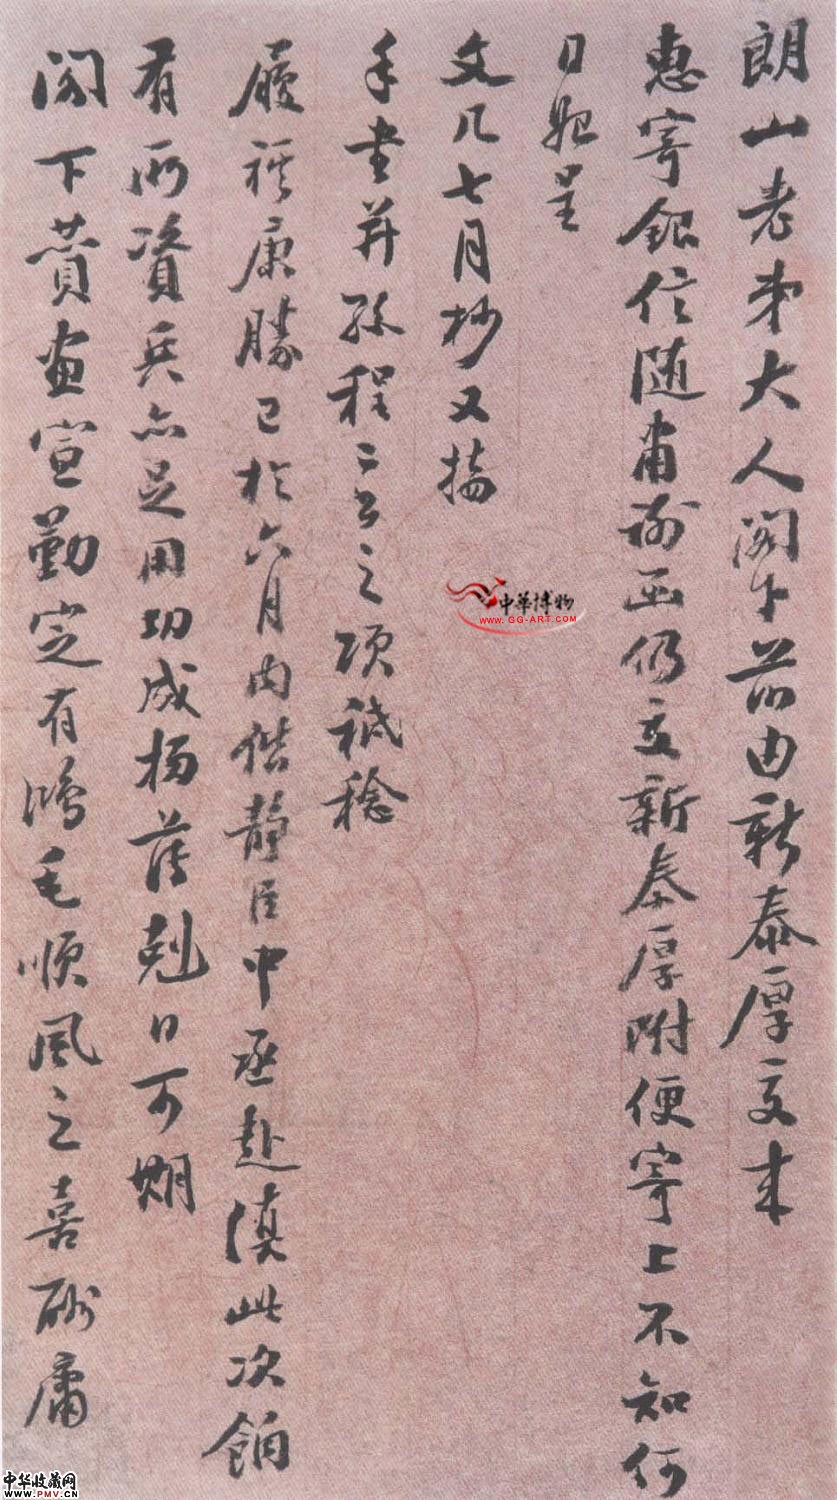 朗山老弟大人阁下前由新泰厚交来
惠寄银信随肃谢函仍交新泰厚附便寄上不知何
日赐呈
文几七月杪又接
手书并孙程二公之项祗稔
履祺康胜已于六月内偕静臣中丞赴滇此次饷
有所资兵亦足用功成扬荡剋日可期
阁下赞画宣勤定有鸿毛顺风之喜酬庸
中華博物
WWW.GG-ART.COM
中华收藏网
WWW.PMV.CN